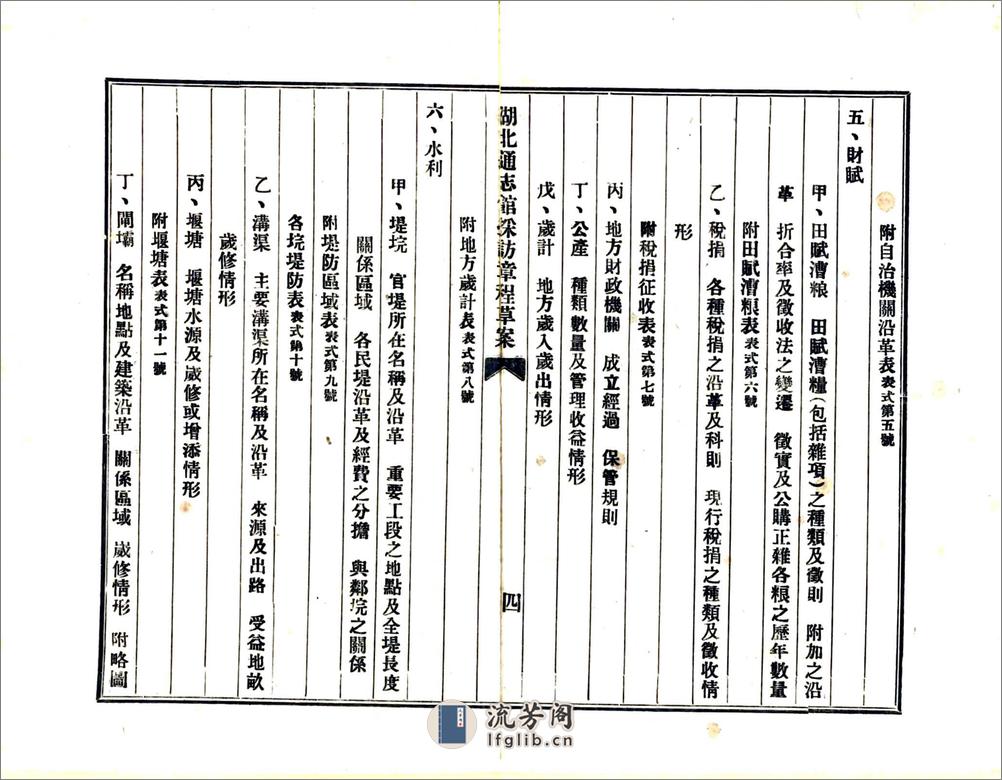 附自治機關沿革表表式第五號
五、財賦
甲、田賦漕粮　田賦漕糧（包括雜項）之種類及徵則　附加之沿
革　折合率及徵收法之變遷　徵實及公購正雜各粮之歷年數量
附田賦漕粮表表式第六號
乙、稅捐　各種稅捐之沿革及科則　現行稅捐之種類及徵收情
形
附稅捐征收表表式第七號
丙、地方財政機關　成立經過　保管規則
丁、公產　種類數量及管理收益情形
戊、歲計　地方歲入歲出情形
湖北通志館採訪章程草案
四
附地方歲計表表式第八號
六、水利
甲、堤垸　官堤所在名稱及沿革　重要工段之地點及全堤長度
關係區域　各民堤沿革及經費之分擔　與鄰垸之關係
附堤防區域表表式第九號
各垸堤防表表式第十號
乙、溝渠　主要溝渠所在名稱及沿革　來源及出路　受益地畝
歲修情形
丙、堰塘　堰塘水源及歲修或增添情形
附堰塘表表式第十一號
丁、閘壩　名稱地點及建築沿革　關係區域　歲修情形　附略圖
流芳阁
lfglib.cn